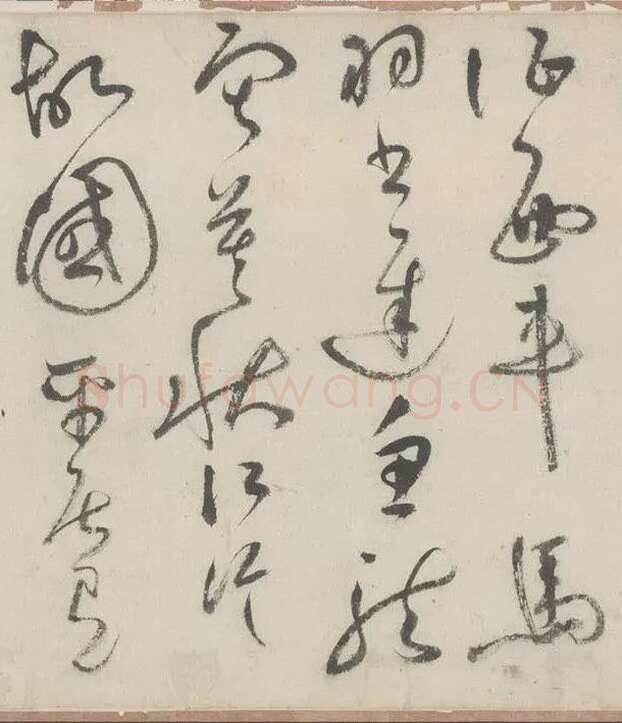 征西車馬
羽書遲魚龍
寂寞秋江冷
故國平居有
Shufawang.CN